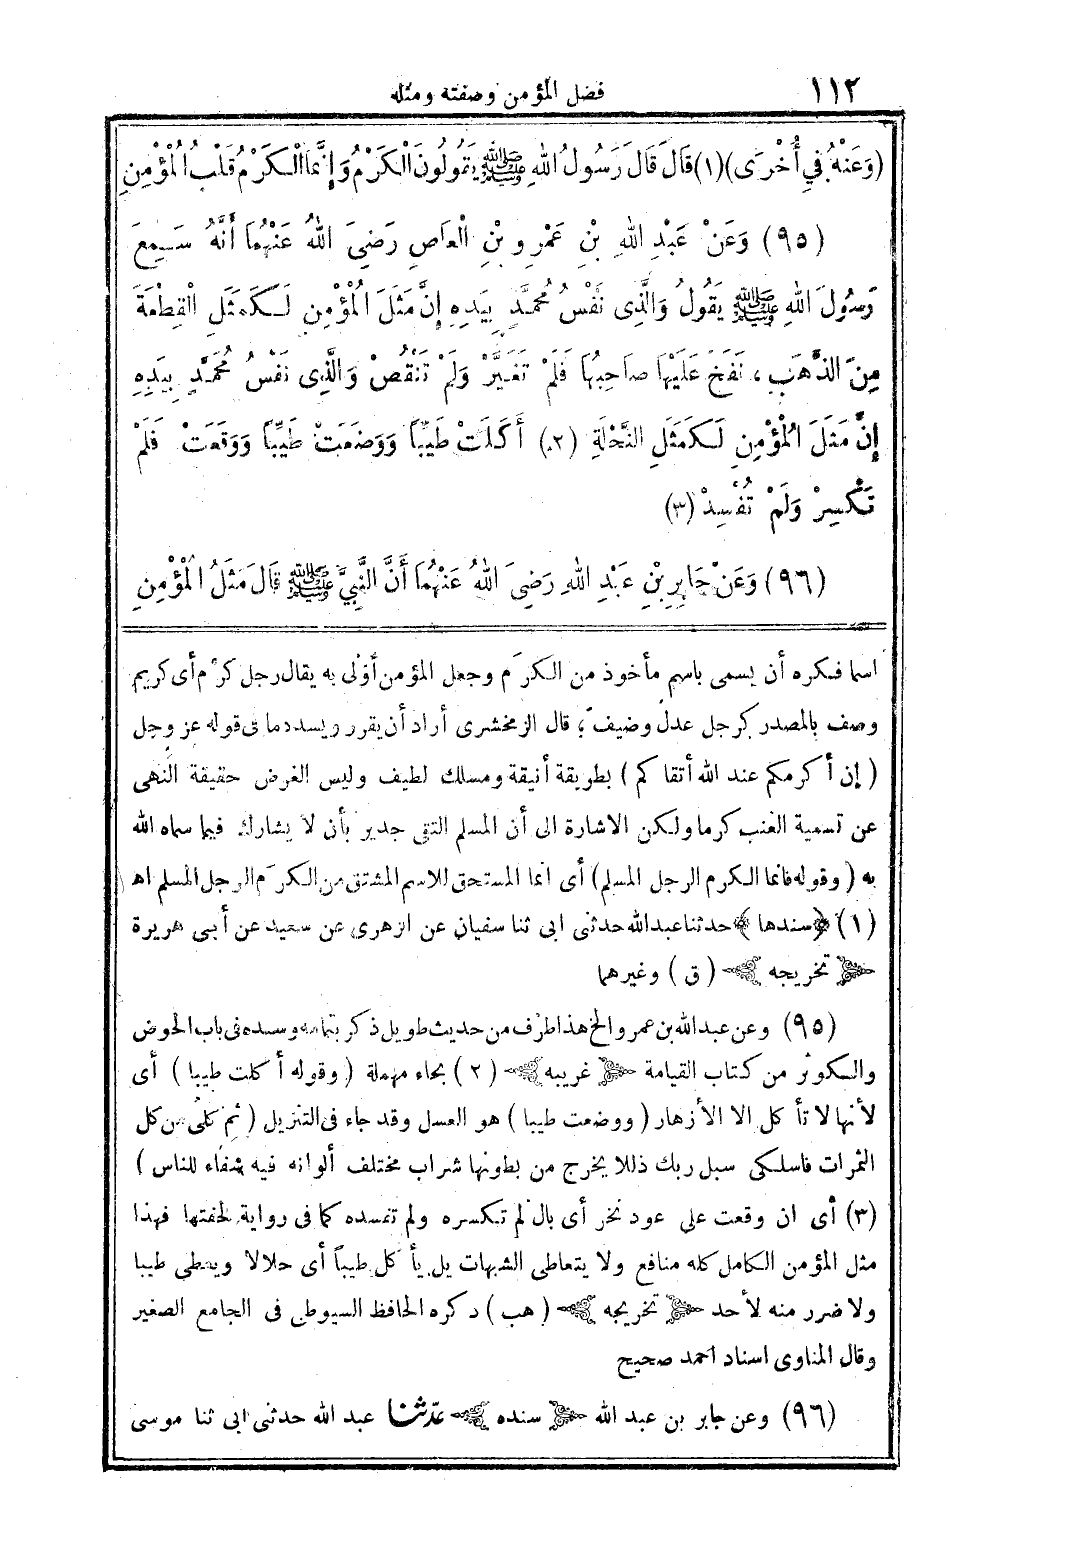 ١١٢
فضل المؤمن وصفته ومثله
(وَعَنْهُ فِي أُخْرَى)(١) قَالَ قَالَ رَسُولُ اللهِ ﷺ يَقُولُونَ الْكَرْمُ وَإِنَّمَا الْكَرْمُ قَلْبُ الْمُؤْمِنِ
(٩٥) وَعَنْ عَبْدِ اللهِ بْنِ عَمْرِو بْنِ الْعَاصِ رَضِيَ اللهُ عَنْهُمَا أَنَّهُ سَمِعَ
رَسُولَ اللهِ ﷺ يَقُولُ وَالَّذِى نَفْسُ مُحَمَّدٍ بِيَدِهِ إِنَّ مَثَلَ الْمُؤْمِنِ لَكَمَثَلِ الْقِطْعَةِ
مِنَ الذَّهَبِ، نَفَخَ عَلَيْهَا صَاحِبُهَا فَلَمْ تَغَيَّرْ وَلَمْ تَنْقُصْ وَالَّذِى نَفْسُ مُحَمَّدٍ بِيَدِهِ
إِنَّ مَثَلَ الْمُؤْمِنِ لَكَمَثَلِ النَّحْلَةِ (٢) أَكَلَتْ طَيِّبًا وَوَضَعَتْ طَيِّبًا وَوَقَعَتْ فَلَمْ
تَكْسِرْ وَلَمْ تُفْسِدْ (٣)
(٩٦) وَعَنْ جَابِرِ بْنِ عَبْدِ اللهِ رَضِيَ اللهُ عَنْهُمَا أَنَّ النَّبِيَّ ﷺ قَالَ مَثَلُ الْمُؤْمِنِ
اسما فكره أن يسمى باسم مأخوذ من الكرَم وجعل المؤمن أوْلى به يقال رجل كرْم أى كريم
وصف بالمصدر كرجل عدل وضيف، قال الزمخشرى أراد أن يقرر ويسدد ما فى قوله عز وجل
(إن أكرمكم عند الله أتقاكم) بطريقة أنيقة ومسلك لطيف وليس الغرض حقيقة النهى
عن تسمية العنب كرما ولكن الاشارة الى أن المسلم التقى جدير بأن لا يشارك فيما سماه الله
به (وقوله فانما الكرم الرجل المسلم) أى انما المستحق للاسم المشتق من الكرَم الرجل المسلم اه
(١) ﴿سندها﴾ حدثنا عبدالله حدثنى ابى ثنا سفيان عن ازهرى عن سعيد عن أبى هريرة
﴿تخريجه﴾ (ق) وغيرهما
(٩٥) وعن عبدالله بن عمرو الخ هذا طرف من حديث طويل ذكر بتمامه وسنده فى باب الحوض
والكوثر من كتاب القيامة ﴿غريبه﴾ (٢) بحاء مهملة (وقوله أكلت طيبا) أى
لأنها لا تأكل الا الأزهار (ووضعت طيبا) هو العسل وقد جاء فى التنزيل (ثم كلى من كل
الثمرات فاسلكى سبل ربك ذللا يخرج من بطونها شراب مختلف ألوانه فيه شفاء للناس)
(٣) أى ان وقعت على عود نخر أى بال لم تكسره ولم تفسده كما فى رواية لخفتها فهذا
مثل المؤمن الكامل كله منافع ولا يتعاطى الشبهات بل يأكل طيباً أى حلالا ويعطي طيبا
ولا ضرر منه لأحد ﴿تخريجه﴾ (هب) ذكره الحافظ السيوطى فى الجامع الصغير
وقال المناوى اسناد احمد صحيح
(٩٦) وعن جابر بن عبد الله ﴿سنده﴾ حدثنا عبد الله حدثنى ابى ثنا موسى